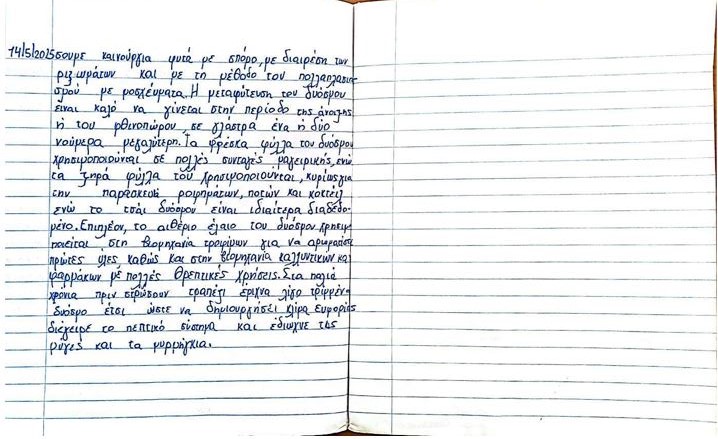 14/5/2025 σουμε καινούργια φυτά με σπόρο, με διαιρέση των
ριζωμάτων και με τη μέθοδο του πολλαπλασια
σμού με μοσχεύματα. Η μεταφύτευση του δυόσμου
είναι καλό να γίνεται στην περίοδο της άνοιξης
ή του φθινοπώρου, σε γλάστρα ένα ή δύο
νούμερα μεγαλύτερη. Τα φρέσκα φύλλα του δυόσμου
χρησιμοποιούνται σε πολλές συνταγές μαγειρικής, ενώ
τα ξηρά φύλλα του χρησιμοποιούνται, κυρίως για
την παρασκευή ροφημάτων, ποτών και κοκτέιλ
ενώ το τσάι δυόσμου είναι ιδιαίτερα διαδεδο-
μένο. Επιπλέον, το αιθέριο έλαιο του δυόσμου χρησιμ
ποιείται στη βιομηχανία τροφίμων για να αρωματίσει
πρώτες ύλες καθώς και στην βιομηχανία καλλυντικών και
φαρμάκων με πολλές θρεπτικές χρήσεις. Στα παλιά
χρόνια πριν στρώσουν τραπέζι έριχνα λίγο τριμμέν-
δυόσμο έτσι ώστε να δημιουργήσει κλίμα ευφορίας
διέγειρε το πεπτικό σύστημα και έδιωχνε τις
μύγες και τα μυρμήγκια.